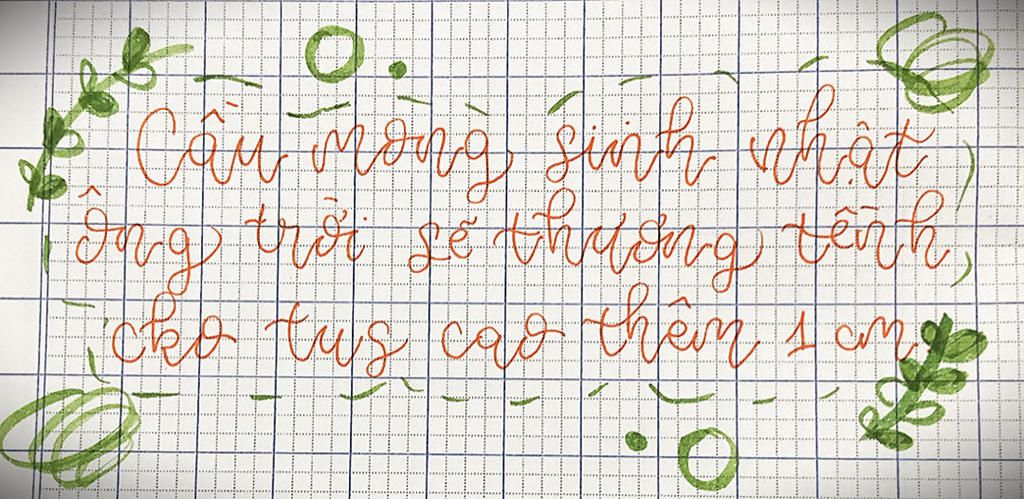 Cầu mong sinh nhật
ông trời sẽ thương tềnh
cko tus cao thêm 1 cm